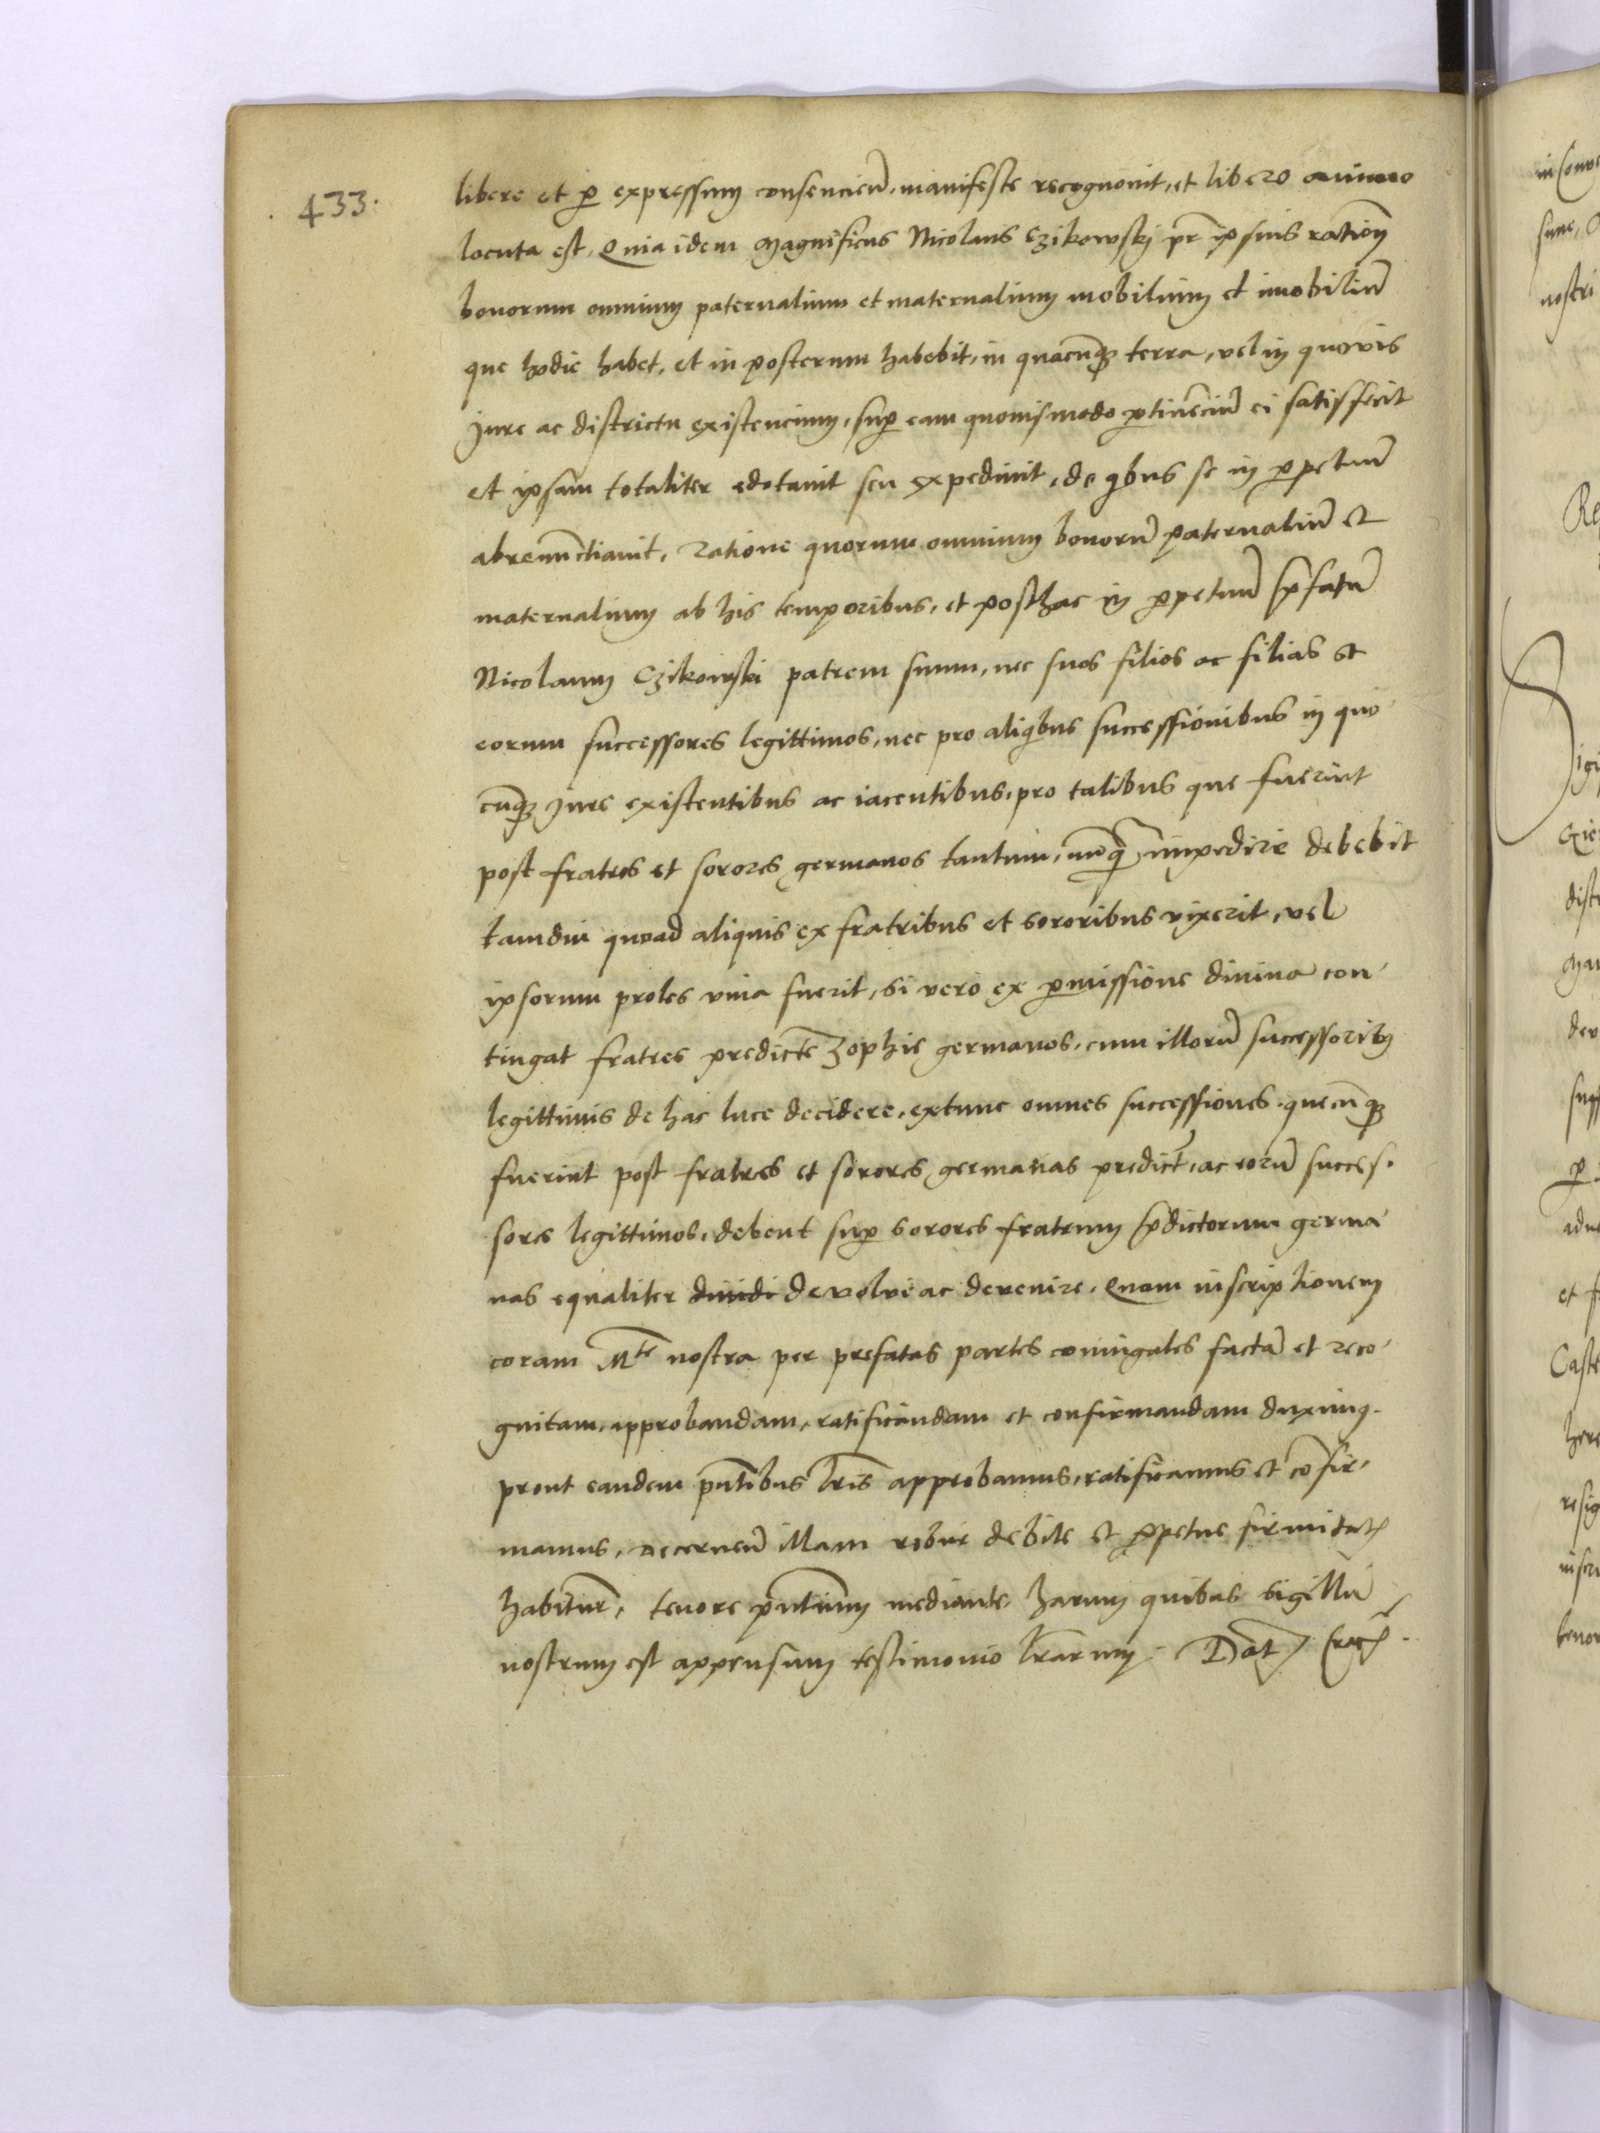 433.
libere et p expressum consencien̄, manifeste recognovit, et libero animo
locuta est, Quia idem Magnificus Nicolaus Czikowskj pr̄ ipsius rationj
bonorum omnium paternalium et maternalium mobilium et imobiliū
que hodie habet, et in posterum habebit, in quacūq; terra, vel in quovis
Jure ac districtu existencium, sup eam quovismodo ptinenciū ei satisfecit
et ipsam totaliter edotavit seu expedivit, de qbus se in ppetuū
abrenūctiavit, ratione quorum omnium bonorū paternaliū et
maternalium ab his temporibus, et posthac in ppetuū p̄fatū
Nicolaum Czikowski patrem suum, nec suos filios ac filias et
eorum successores legittimos, nec pro aliqbus successionibus in quo
cūq; Jure existentibus ac iacentibus, pro talibus que fuerint
post fratres et sorores germanos tantum, nūq̄ impedire debebit
tamdiu quoad aliquis ex fratribus et sororibus vixerit, vel
ipsorum proles viva fuerit, Si vero ex pmissione divina con
tingat fratres predicte Zophie germanos, cum illorū successorib9
legittimis de hac luce decidere, extunc omnes successiones quecūq;
fuerint post fratres et sorores germanas predict̄, ac eorū succes
sores legittimos, debent sup sorores fratrum p̄dictorum germa
nas equaliter dividi devolvi ac devenire, Quam inscriptionem
coram Mte nostra per prefatas partes coniugales factā et reco
gnitam, approbandam, ratificandam et confirmandam duxim9
prout eandem pn̄tibus lr̄is approbamus, ratificamus et cōfir
mamus, decernen̄ illam robur debite et ppetue firmitat
habitur̄, tenore pn̄tium mediante, harum quibus sigillū
nostrum est appensum testimonio lrārum. Dat Crac